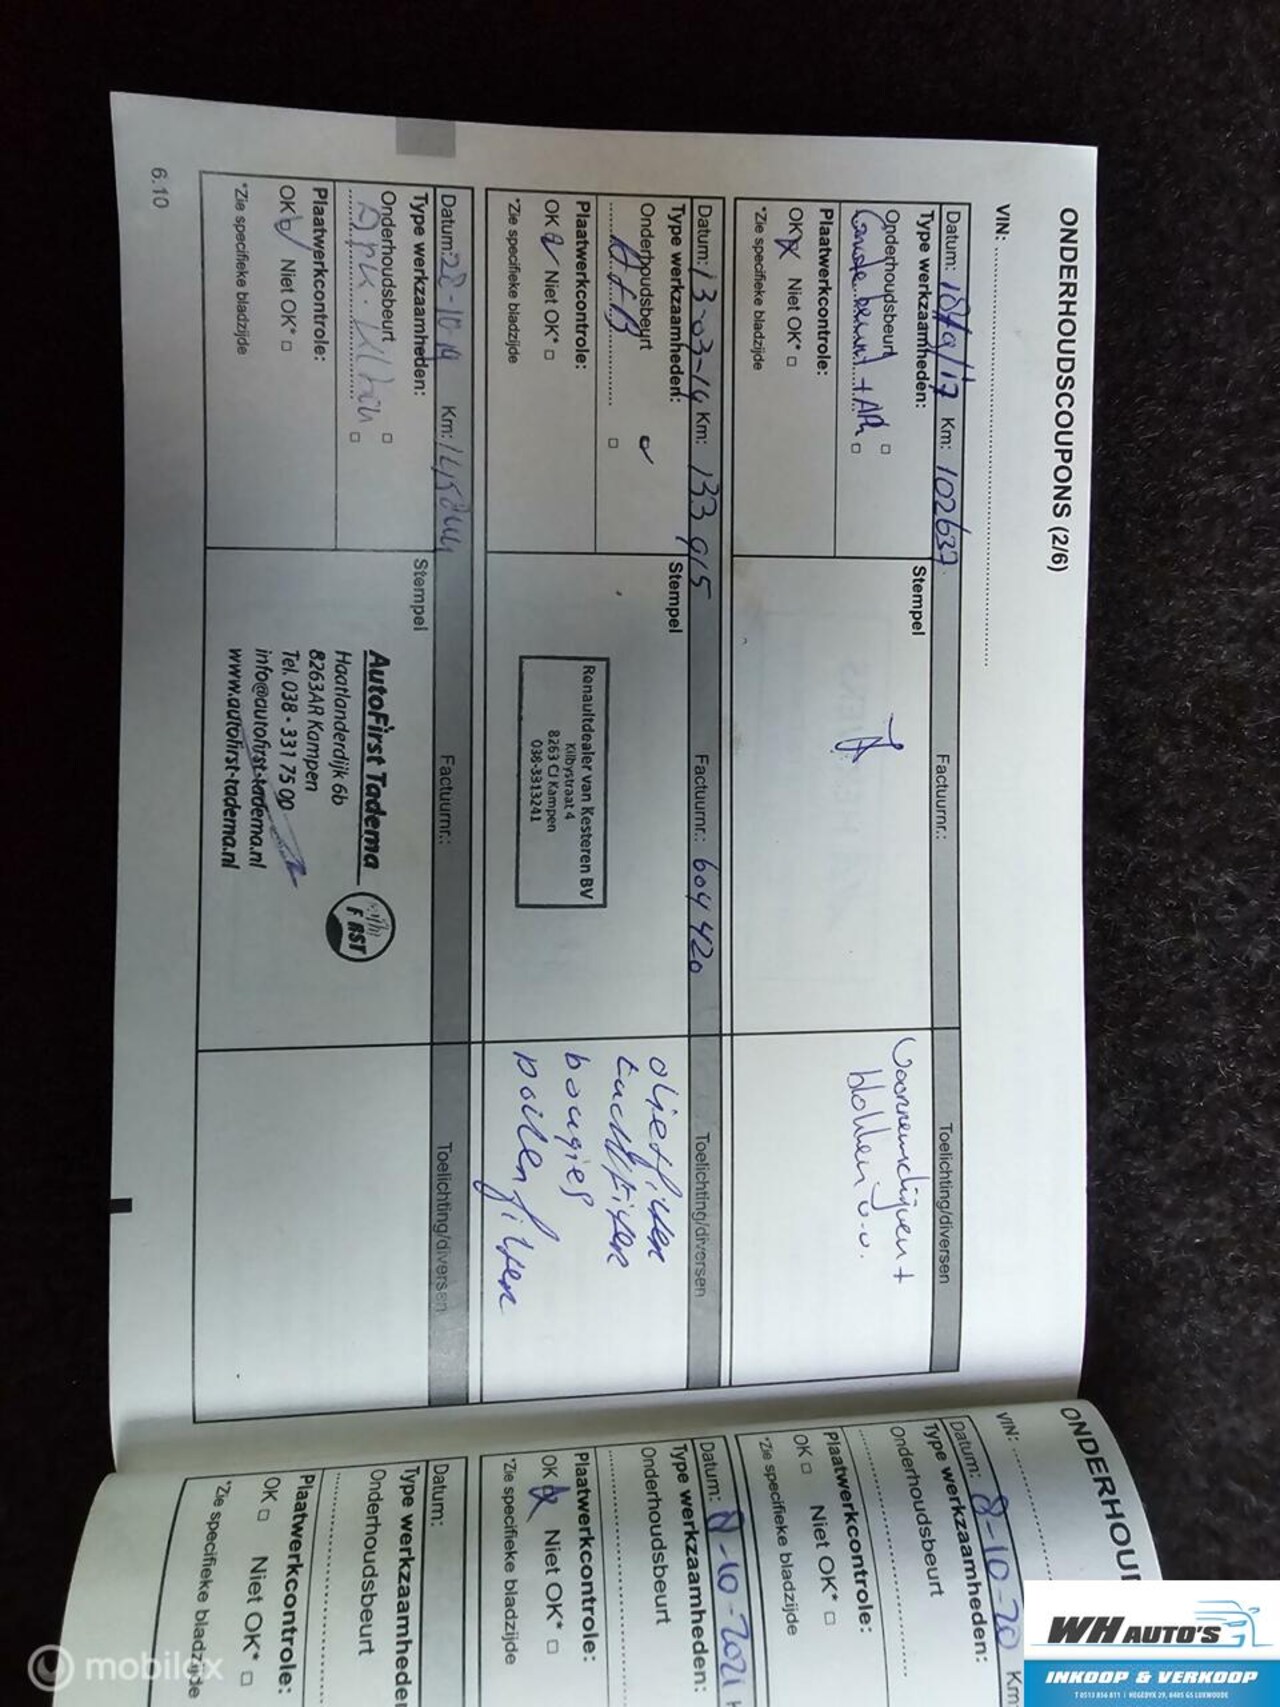 ONDERHOUDSCOUPONS (2/6)
VIN:
Datum: Km: 102637 Factuurnr.: Toelichting/diversen
Type werkzaamheden: Stempel
Onderhoudsbeurt
Plaatwerkcontrole:
OK Niet OK*
*Zie specifieke bladzijde
Voorremschijven +
blokken v.v.
Datum: 13-03-19 Km: 133915 Factuurnr.: 604420 Toelichting/diversen
Type werkzaamheden: Stempel
Onderhoudsbeurt
A+B
Plaatwerkcontrole:
OK Niet OK*
*Zie specifieke bladzijde
Renaultdealer van Kesteren BV
Kilbystraat 4
8263 CJ Kampen
038-3313241
oliefilter
luchtfilter
bougies
pollenfilter
Datum: 28-10-19 Km: Factuurnr.: Toelichting/diversen
Type werkzaamheden: Stempel
Onderhoudsbeurt
Plaatwerkcontrole:
OK Niet OK*
*Zie specifieke bladzijde
AutoFirst Tadema
FIRST
Haatlanderdijk 6b
8263AR Kampen
Tel. 038 - 331 75 00
info@autofirst-tadema.nl
www.autofirst-tadema.nl
6.10
ONDERHOU
VIN:
Datum: 8-10-20 Km
Type werkzaamheden:
Onderhoudsbeurt
Plaatwerkcontrole:
OK Niet OK*
*Zie specifieke bladzijde
Datum: 11-10-2021
Type werkzaamheden:
Onderhoudsbeurt
Plaatwerkcontrole:
OK Niet OK*
*Zie specifieke bladzijde
Datum:
Type werkzaamheden
Onderhoudsbeurt
Plaatwerkcontrole:
OK Niet OK*
*Zie specifieke bladzijde
mobilox
WH AUTO'S
INKOOP & VERKOOP
T 0513 856 811 | HEGEDYK 29, 8405 GS LUXWOUDE